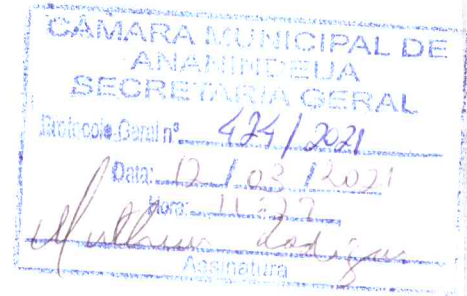 CÂMARA MUNICIPAL DE
ANANINDEUA
SECRETARIA GERAL
Protocolo Geral nº 424/2021
Data: 12/03/2021
Hora: 11:27
Assinatura